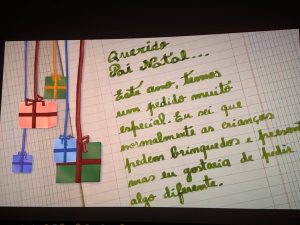 Querido
Pai Natal...
Este ano, temos
um pedido muito
especial. Eu sei que
normalmente as crianças
pedem brinquedos e present
mas eu gostaria de pedir
algo diferente.